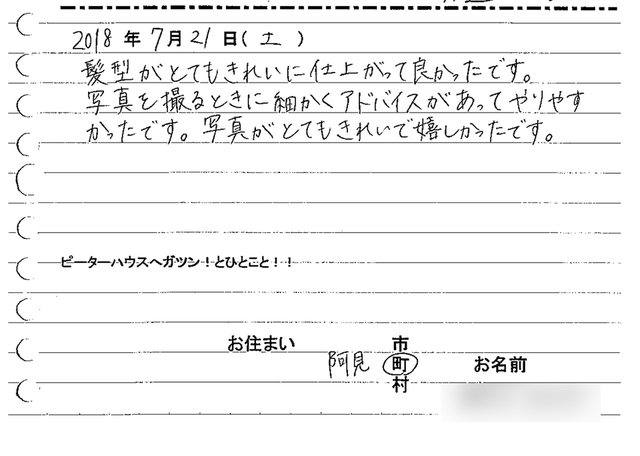 2018年7月21日(土)
髪型がとてもきれいに仕上がって良かったです。
写真を撮るときに細かくアドバイスがあってやりやす
かったです。写真がとてもきれいで嬉しかったです。
ピーターハウスへガツン！とひとこと！！
お住まい
市
阿見 町 お名前
村